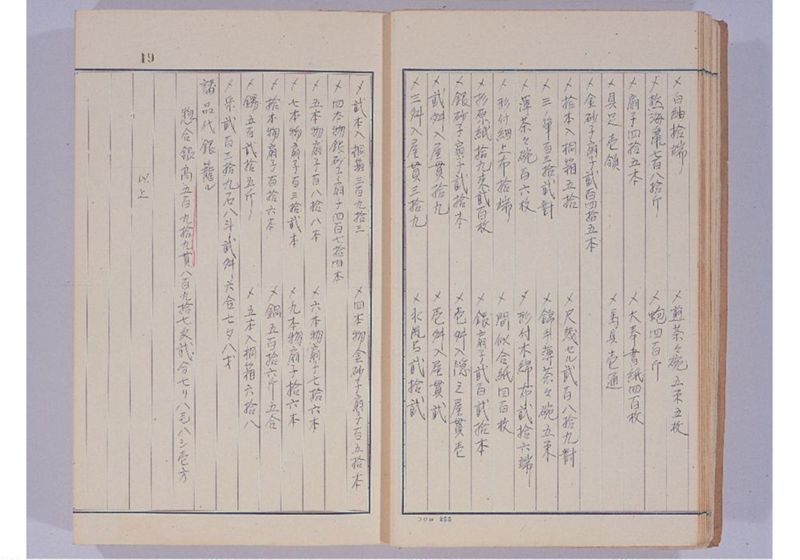 〆白紬拾端　〆煎茶々碗五束五枚
〆熬海鼠七百八拾斤　〆鮑四百斤
〆扇子四拾五本　〆大奉書紙四百枚
〆具足壱領　〆馬具壱通
〆金砂子扇子貳百四拾五本
〆拾本入桐箱五拾　〆尺幾セル貳百八拾九對
〆三ツ筆百三拾貳對　〆錦手薄茶々碗五束
〆薄茶々碗白六枚　〆形付木綿 貳拾六端
〆形付細上布拾端　〆間似合紙四百枚
〆杉原紙拾九束貳百枚　〆銀扇子貳百貳拾本
〆銀砂子扇子貳拾本　〆壱舛入隠之屋貫壱
〆貳舛入屋貫拾九　〆壱舛入屋貫貳
〆三舛入屋貫三拾九　〆水風呂貳拾貳
コクヨ
19
〆貳本入桐箱三百九拾三　〆四本物金砂子扇子百五拾本
〆四本物銀砂子扇子四百七拾四本
〆五本物扇子百八拾八本　〆六本物扇子七拾六本
〆七本物扇子百三拾貳本　〆九本物扇子拾六本
〆拾本物扇子百拾六本　〆銅五百拾六斤五合
〆錫五百貳拾五斤　〆五本入桐箱六拾八
〆米貳百三拾九石八斗貳舛六合七夕八才
諸品代銀 ル
惣合銀高五百九拾九貫八百九拾七文貳分七リ八毛八シ壱方
以上